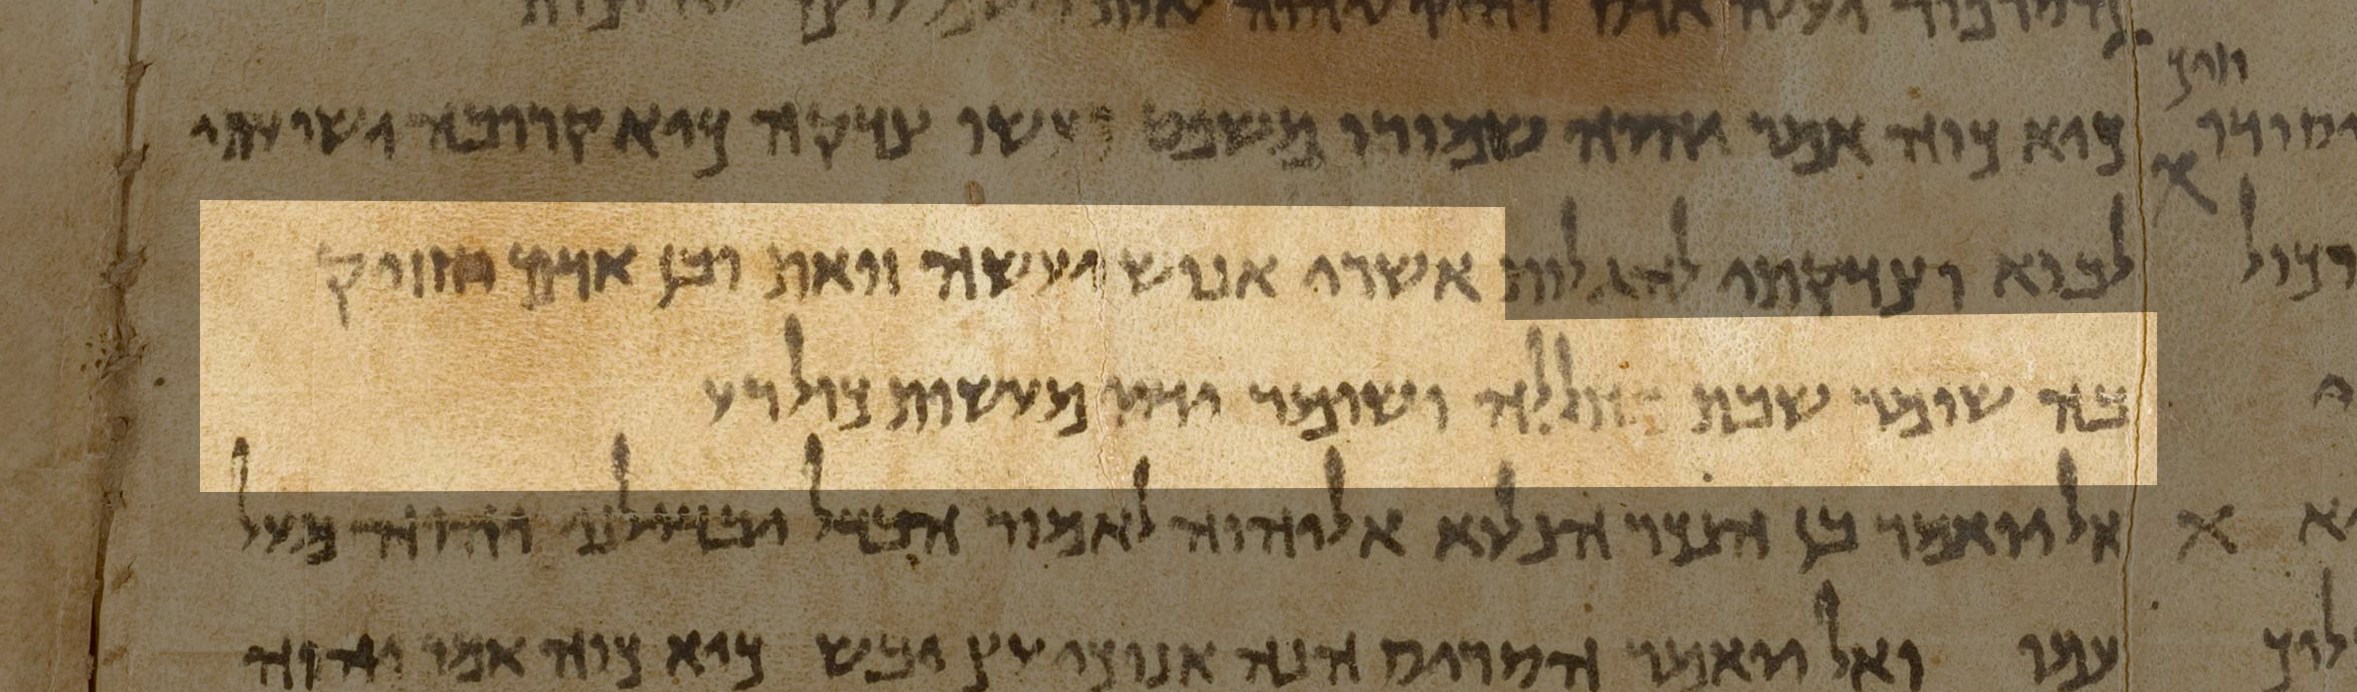 כיא כוה אמר יהוה שמורו משפט ועשו צדקה כיא קרובה ישועתי
לבוא וצדקתי להגלות אשרי אנוש יעשה זואת ובן אדם יחזיק
בה שומר שבת מחללה ושומר ידיו מעשות כול רע
אל יואמר בן הנכר הנלוא אל יהוה לאמור הבדל יבדילני יהוה מעל
עמו ואל יואמר הסריס הנה אנוכי עץ יבש כיא כוה אמר יהוה